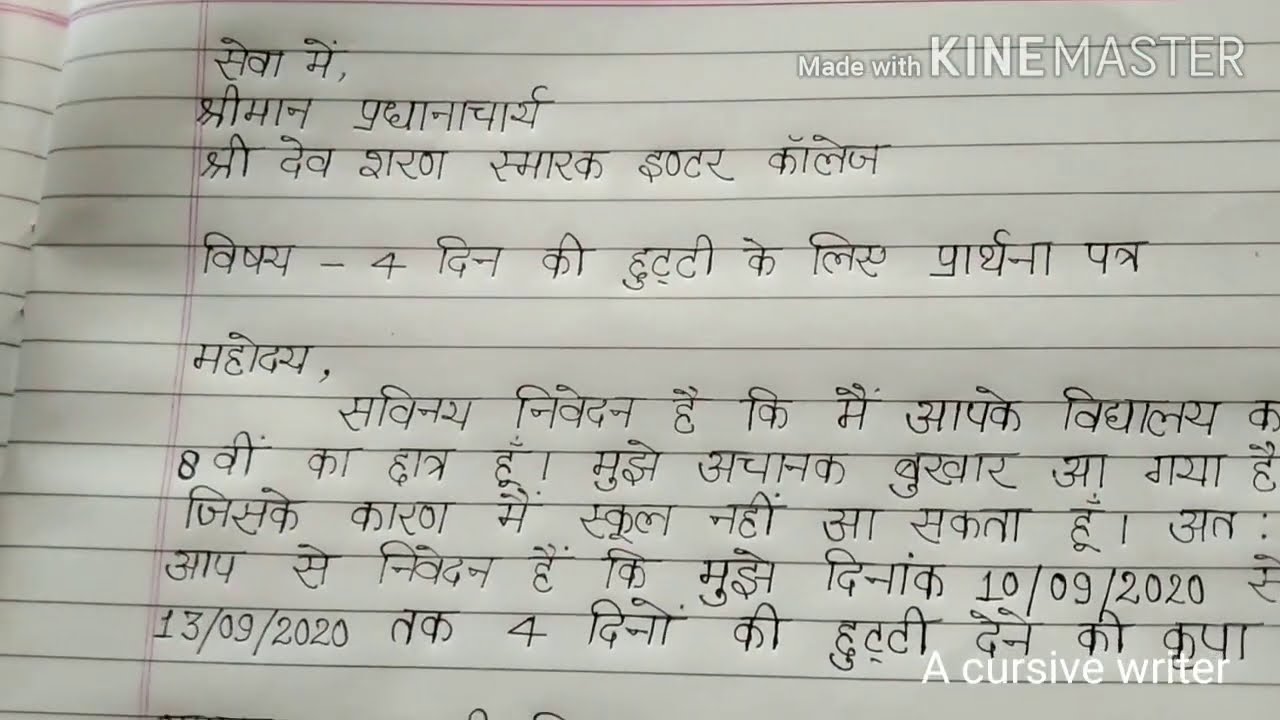 Made with KINEMASTER
सेवा में,
श्रीमान प्रधानाचार्य
श्री देव शरण स्मारक इण्टर कॉलेज
विषय - 4 दिन की छुट्टी के लिए प्रार्थना पत्र
महोदय,
सविनय निवेदन है कि मैं आपके विद्यालय क
8 वीं का छात्र हूँ। मुझे अचानक बुखार आ गया है
जिसके कारण मैं स्कूल नहीं आ सकता हूँ। अत:
आप से निवेदन हैं कि मुझे दिनांक 10/09/2020 से
13/09/2020 तक 4 दिनों की छुट्टी देने की कृपा
A cursive writer